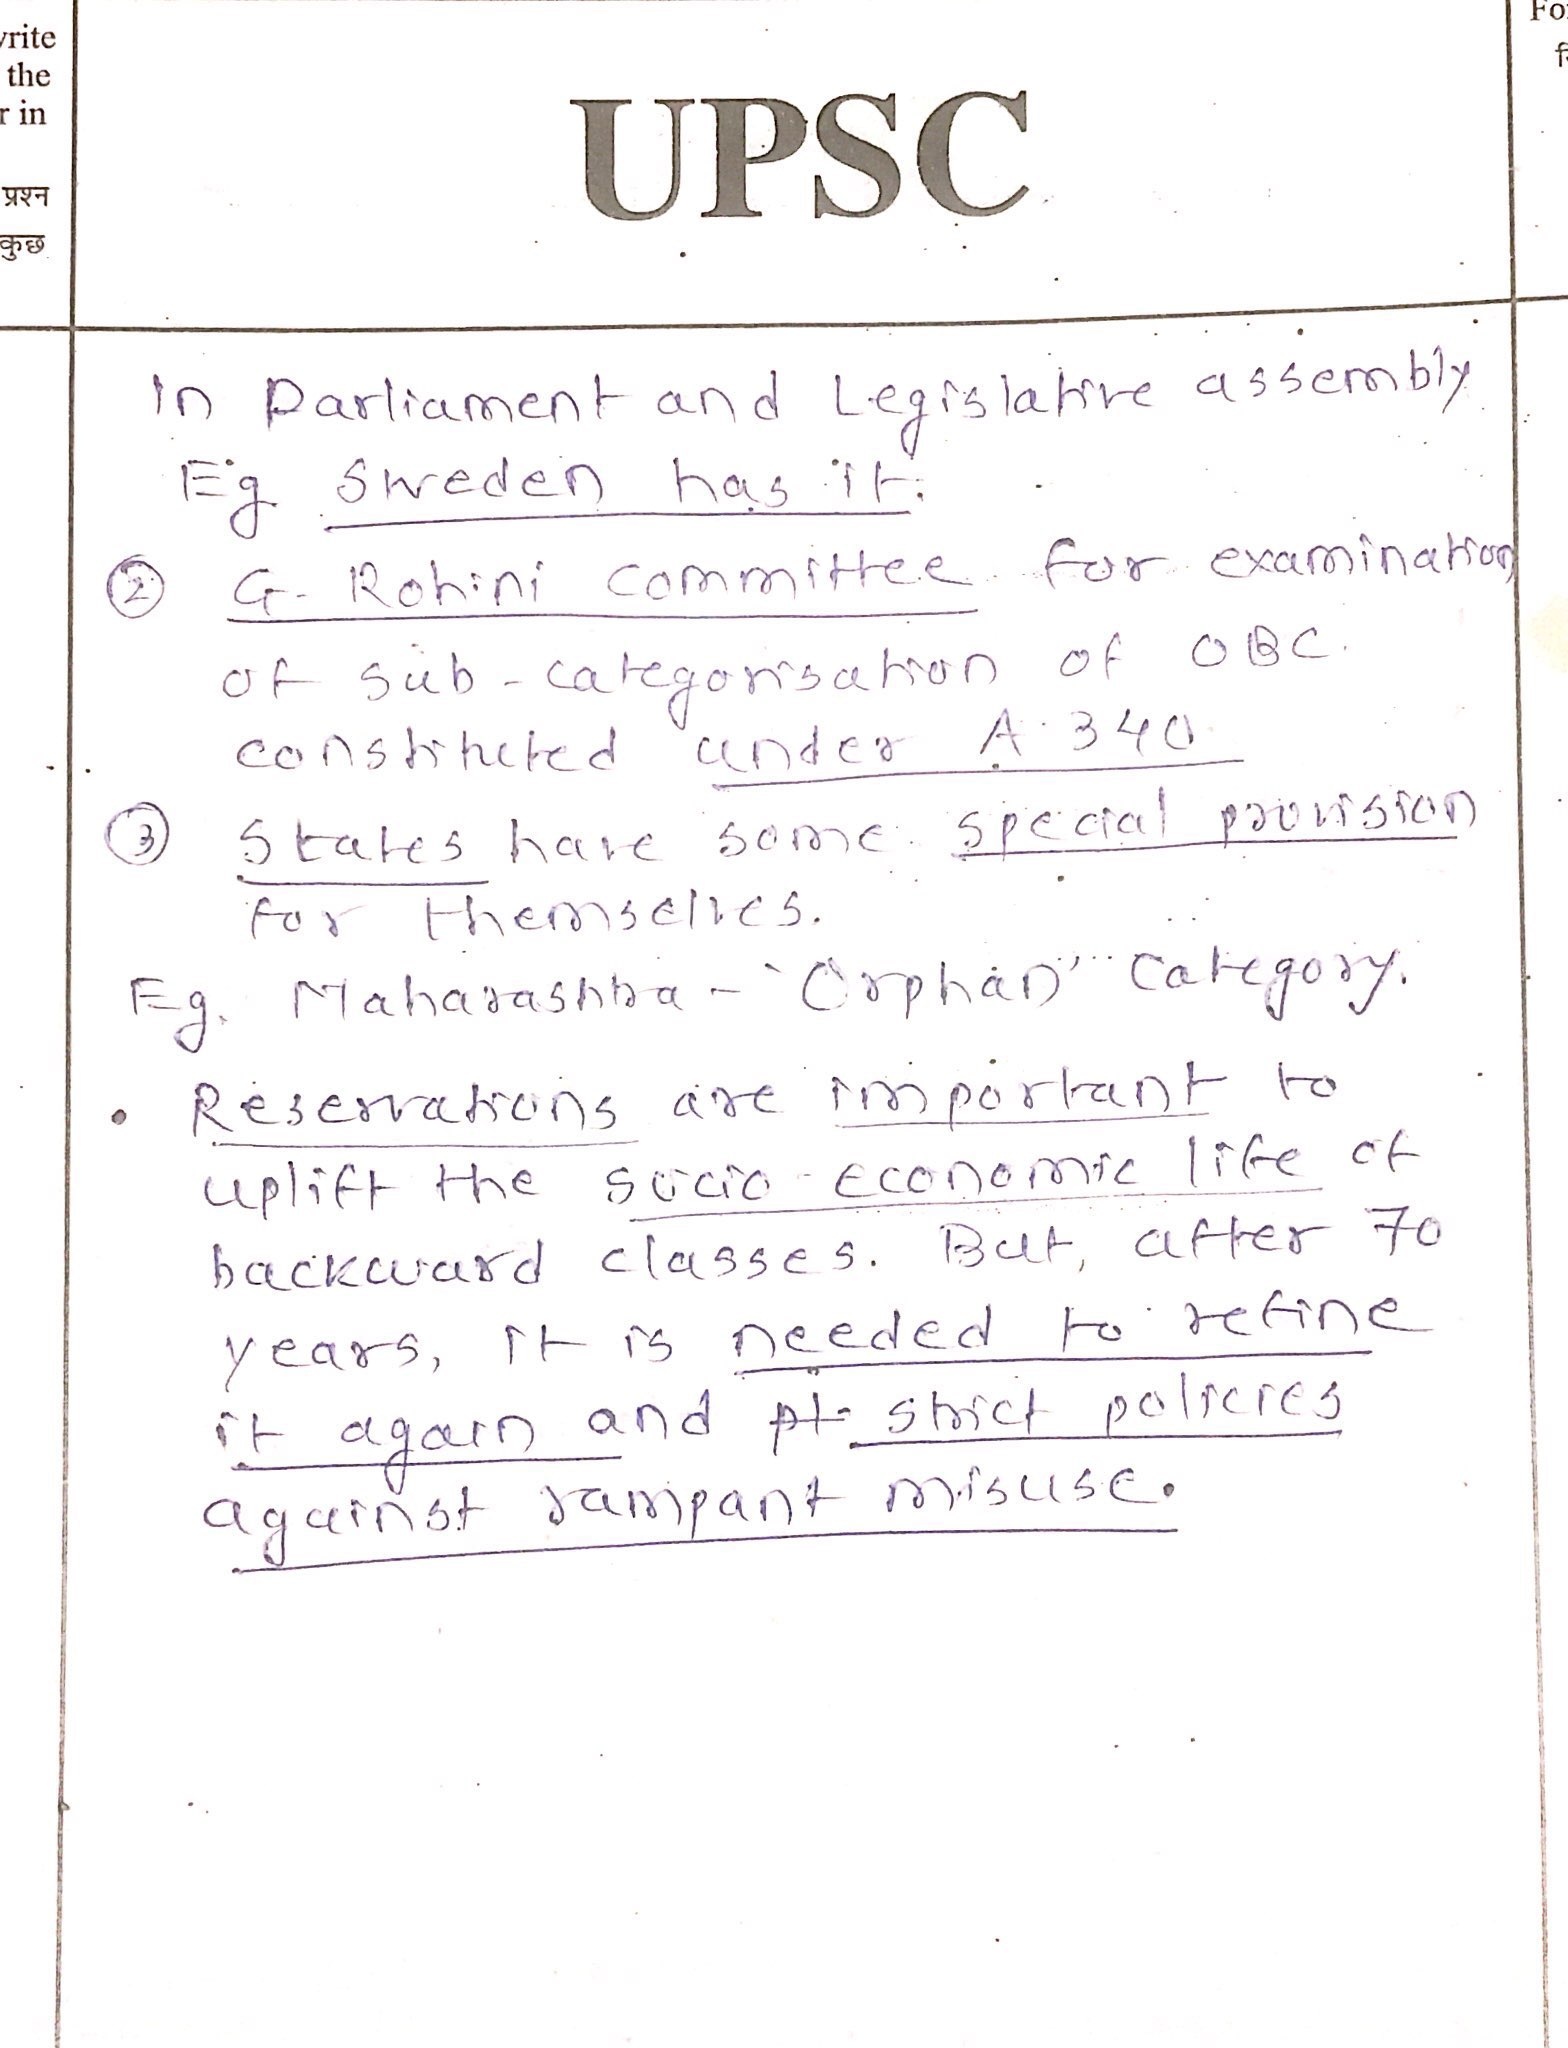 write
the
r in
प्रश्न
कुछ
Fo
UPSC
in Parliament and Legislative assembly
Eg Sweden has it.
② G. Rohini committee for examination
of sub-categorisation of OBC.
constituted under A. 340
③ States have some special provision
for themselves.
Eg. Maharashtra - "Orphan" category.
• Reservations are important to
uplift the socio-economic life of
backward classes. But, after 70
years, it is needed to refine
it again and strict policies
against rampant misuse.